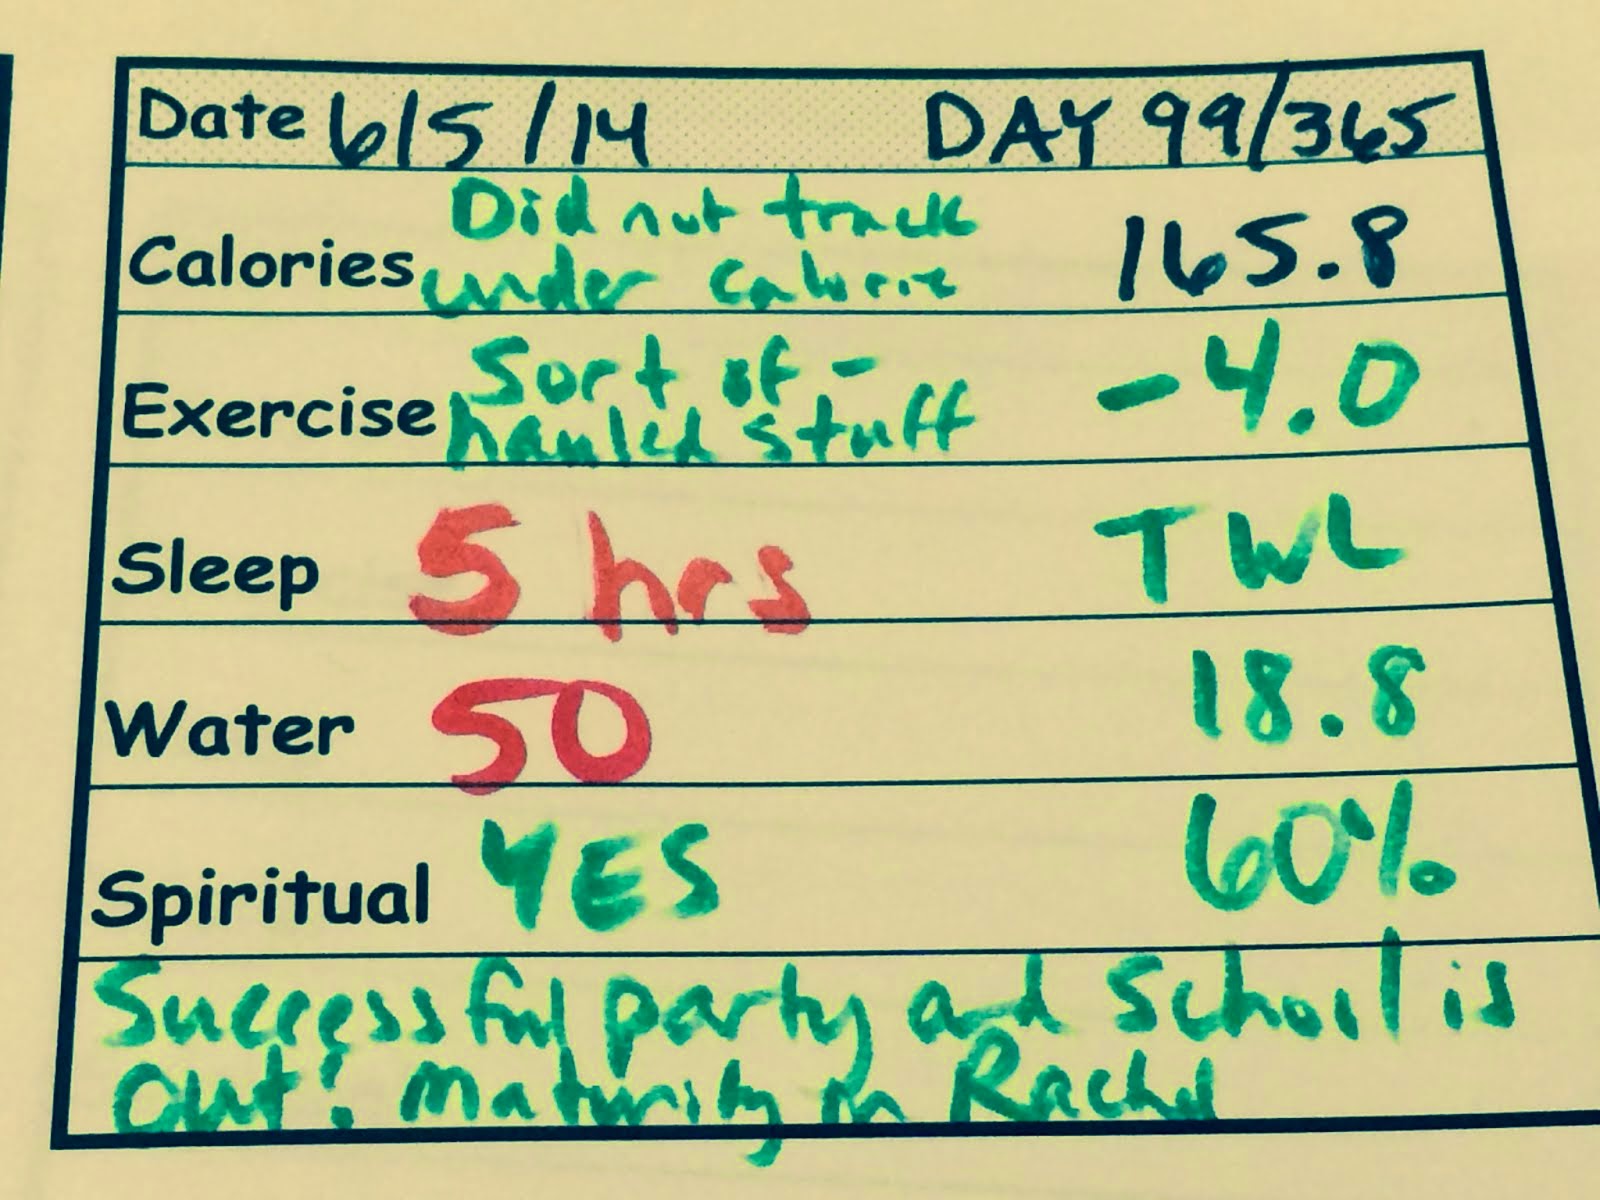 Date 6/5/14 DAY 99/365
Did not track
Calories under calorie 165.8
Sort of - -4.0
Exercise hauled stuff
Sleep 5 hrs TWL
Water 50 18.8
Spiritual YES 60%
Successful party and School is
Out! Maturity in Rachel